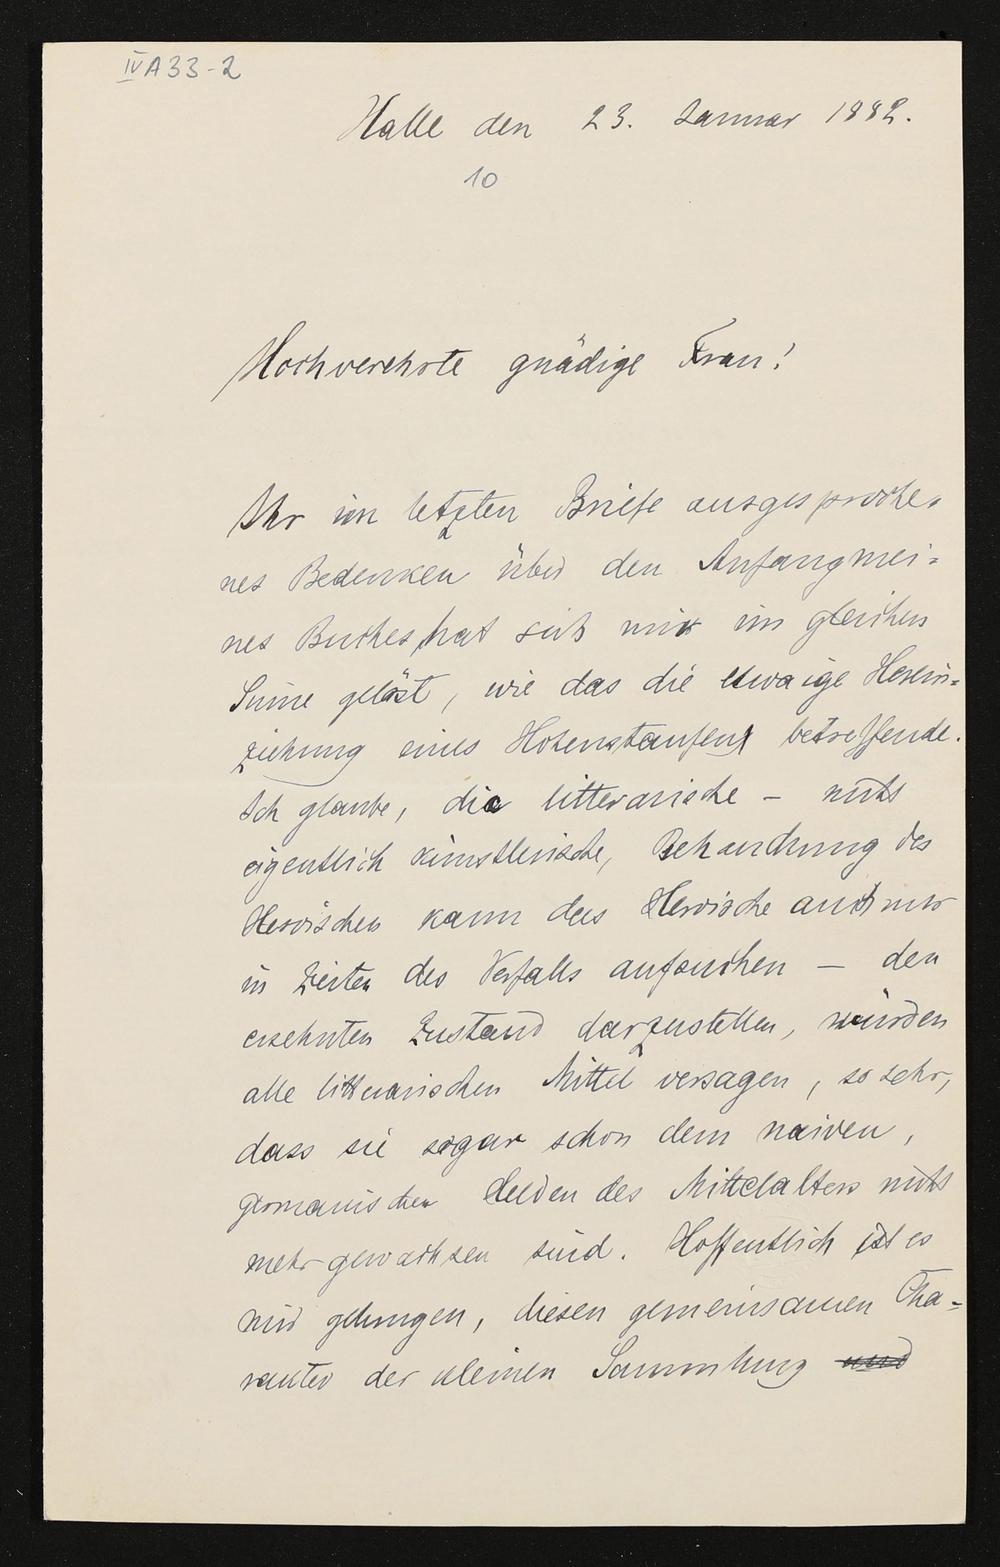 IV A 33-2
Halle den 23. Januar 1882.
10
Hochverehrte gnädige Frau!
Ihr im letzten Briefe ausgesproche-
nes Bedenken über den Anfang mei-
nes Buches hat sich mir im gleichen
Sinne gelöst, wie das die etwaige Herein-
ziehung eines Hohenstaufen betreffende.
Ich glaube, die litterarische – nicht
eigentlich künstlerische, Behandlung des
Heroischen kann das Heroische auch nur
in Zeiten des Verfalls aufsuchen – den
ersehnten Zustand darzustellen, würden
alle litterarischen Mittel versagen, so sehr,
dass sie sogar schon dem naiven,
germanischen Helden des Mittelalters nicht
mehr gewachsen sind. Hoffentlich ist es
mir gelungen, diesen gemeinsamen Cha-
rakter der kleinen Sammlung und